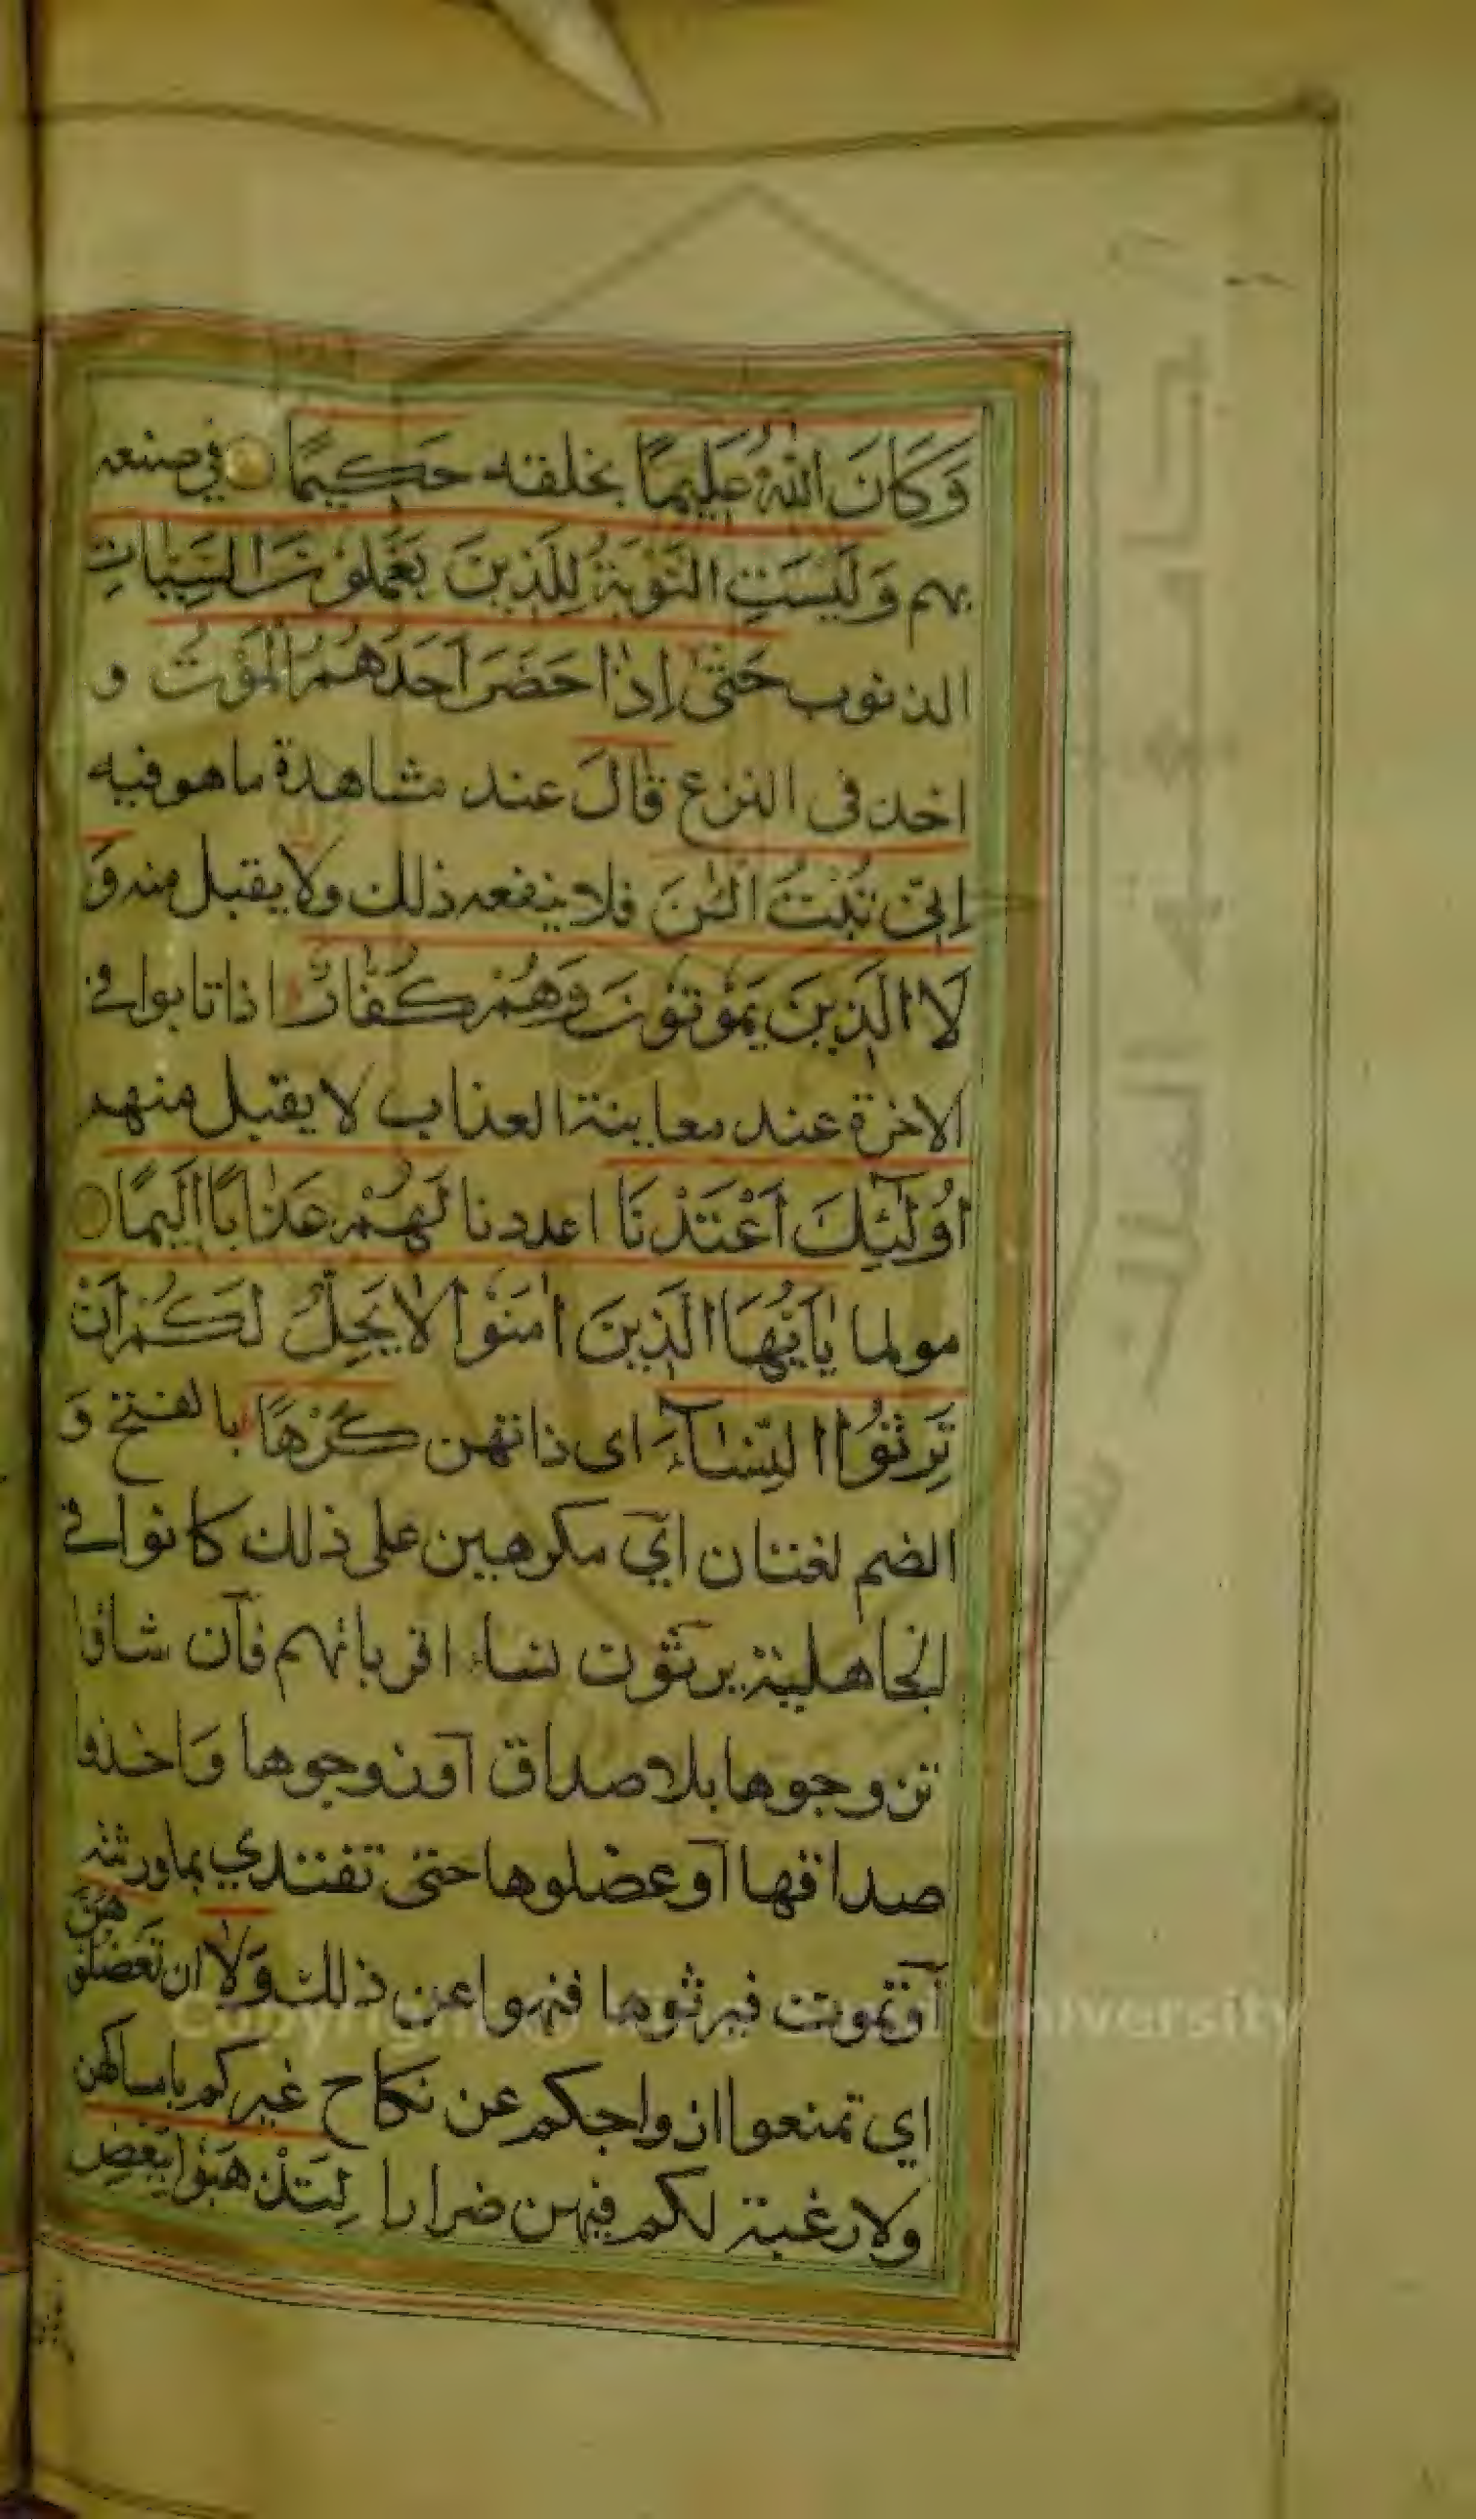 وَكَانَ اللّٰهُ عَلِيمًا بخلقه حَكِيمًا في صنعه
بهم وَلَيْسَتِ التَّوْبَةُ لِلَّذِينَ يَعْمَلُوْنَ السَّيِّاٰتِ
الذنوب حَتّٰى اِذَا حَضَرَ اَحَدَهُمُ الْمَوْتُ و
اخذ في النزع قَالَ عند مشاهدة ما هو فيه
اِنِّي تُبْتُ الْـٰٔنَ فلا ينفعه ذلك ولا يقبل منه وَ
لَا الَّذِينَ يَمُوْتُوْنَ وَهُمْ كُفَّارٌ اذا تابوا في
الاخرة عند معاينة العذاب لا يقبل منهم
اُولٰٓئِكَ اَعْتَدْنَا اعددنا لَهُمْ عَذَابًا اَلِيمًا
مولما يٰٓاَيُّهَا الَّذِينَ اٰمَنُوْا لَا يَحِلُّ لَكُمْ اَنْ
تَرِثُوا النِّسَآءَ اى ذاتهن كَرْهًا بالفتح وَ
الضم لغتان اي مكرهين على ذلك كانوا في
الجاهلية يرثون نساء اقربائهم فان شاؤا
تزوجوها بلا صداق او زوجوها وَاخذوا
صداقها او عضلوها حتى تفتدي بما ورثته
او تموت فيرثوها فنهوا عن ذلك وَلَا ان تَعْضُلُوْ
هُنَّ
اي تمنعوا ازواجكم عن نكاح غيركم بامساكهن
ولا رغبة لكم فيهن ضرارا لِتَذْهَبُوْا بِبَعْضِ
Copyright © King Saud University
جامعة الملك سعود